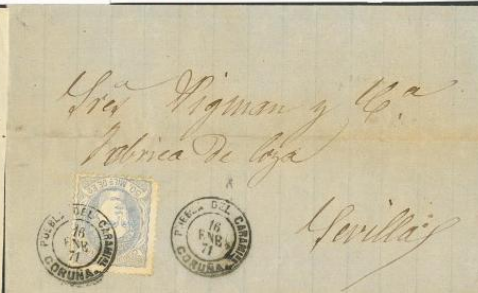 Sres Pigman y Cª
Fabrica de loza
Sevilla
PUEBLA DEL CARAMIÑAL
16
ENE
71
CORUÑA
PUEBLA DEL CARAMIÑAL
16
ENE
71
CORUÑA